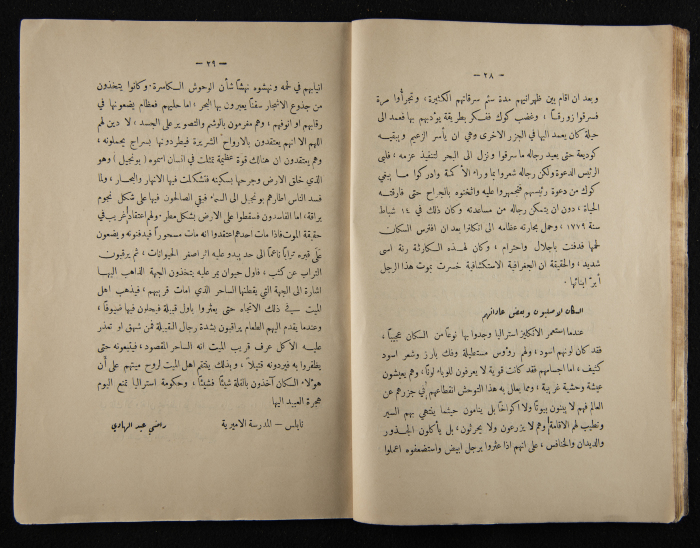 — ٢٨ —
وبعد ان اقام بين ظهرانيهم مدة سئم سرقاتهم الكثيرة، وتجرأوا مرة
فسرقوا زورقـاً، وغضب كوك ففـكر بطريقة يؤدبهم بها فعمد الى
حيلة كان يعمد اليها في الجزر الاخرى وهي ان يأسر الزعيم ويبقيـه
كوديعة حتى يعيد رجاله ما سرقوا ونزل الى البحر لتنفيذ عزمه، فلبى
الرئيس الدعوة ولكن رجاله شعروا بما وراء الأكمة وادركوا مـا ينبغي
كوك من دعوة رئيسهم فتجمهروا عليه واثخنوه بالجراح حتى فارقتـه
الحياة، دون ان يتمكن رجاله من مساعدته وكان ذلك في ١٤ شباط
سنة ١٧٧٩، وحمل بحارته عظامه الى انكلترا بعد ان افترس السكان
لحمها فدفنت باجلال واحترام، وكان لهـذه الكـارثة رنة اسى
شديد، والحقيقة ان الجغرافية الاستكشافية خسرت بموت هذا الرجل
أبرّ ابنائها.
السكان الاصليون وبعض عاداتهم
عندما استعمر الانكليز استراليا وجدوا بها نوعاً من السكان عجيباً،
فقد كان لونهم اسود، ولهم رؤوس مستطيلة وفك بارز وشعر اسود
كثيف، اما اجسامهم فقد كانت قوية لا يعرفون للوباء لوناً، وهم يعيشون
عيشة وحشية غريبة، ومما يعلل به هذا التوحش انقطاعهم في جزرهم عن
العالم فهم لا يبنون بيوتاً ولا اكواخاً بل ينامون حيثما ينتهي بهم السير
وتطيب لهم الاقامة وهم لا يزرعون ولا يحرثون، بل يأكلون الجـذور
والديدان والخنافس، على انهم اذا عثروا برجل ابيض واستضعفوه اعملوا
— ٢٩ —
انيابهم في لحمه ونهشوه نهشاً شأن الوحوش الكـاسرة. وكانوا يتخذون
من جذوع الاشجار سفناً يعبرون بها البحر، اما حليهم فعظام يضعونها في
رقابهم او انوفهم، وهم مغرمون بالوشم والتصوير على الجسد، لا دين لهم
اللهم الا انهم يعتقدون بالارواح الشريرة فيطردونها بسراج يحملونه،
وهم يعتقدون ان هنالك قوة عظيمة تمثلت في انسان اسموه (بونجيل) وهو
الذي خلق الارض وجرحها بسكينه فتشكلت فيها الانهار والبحـار، ولما
فسد الناس اطارهم بونجيل الى السماء فبقي الصالحون فيها على شكل نجوم
براقة، اما الفاسدون فسقطوا على الارض بشكل مطر. ولهم اعتقاد غريب في
حقيقة الموت فاذا مات احدهم اعتقدوا انه مات مسحوراً فيدفنونه ويضعون
على قبره تراباً ناعماً الى حد يبدو عليه اثر اصغر الحيوانات، ثم يرقبون
التراب عن كثب، فاول حيوان يمر عليه يتخذون الجهة الذاهب اليهـا
اشارة الى الجهة التي يقطنها الساحر الذي امات قريبهم، فيذهب اهل
الميت في ذلك الاتجاه حتى يعثروا باول قبيلة فيحلون فيها ضيوفاً،
وعندما يقدم اليهم الطعام يراقبون بشدة رجال القبيلة فمن شهق او تعذر
عليـه الاكل عرف قريب الميت انه الساحر المقصود، فيتبعونه حتى
يظفروا به فيردونه قتيلاً، وبذلك ينتقم اهل الميت لروح ميتهم على أن
هؤلاء السكان آخذون بالقلة شيئاً فشيئاً، وحكومة استراليا تمنع اليوم
هجرة العبيد اليها
نابلس - المدرسة الاميرية
راضي عبد الهادي